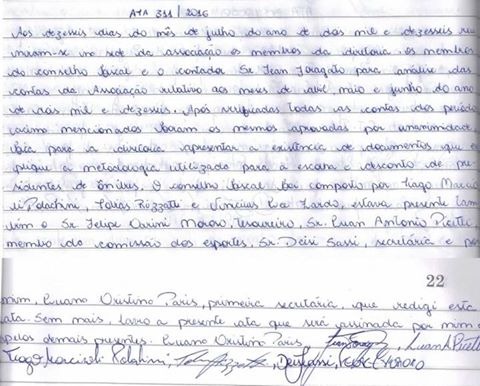 ATA 311/2016
Aos dezesseis dias do mês de julho do ano de dois mil e dezesseis reu
niram-se na sede da associação os membros da diretoria, os membros
do conselho fiscal e o contador Sr. Jean Faragão para análise das
contas da Associação relativo aos meses de abril maio e junho do ano
de dois mil e dezesseis. Após verificadas todas as contas do período
acima mencionados foram os mesmos aprovadas por unanimidade,
para a diretoria apresentar a existência de documentos que e
a metodologia utilizada para a escolha e desconto de pre-
sidentes de ônibus. O conselho fiscal foi composto por Tiago Marcio
li Polachini, Rizzatti e Vinicius, estava presente tam
bém o Sr. Felipe Carini Moroso, tesoureiro, Sr. Luan Antonio
membro da comissão dos esportes, Sr. Deisi Sassi, secretária e por
22
mim, Luana Cristina Paris, primeira secretária, que redigi esta
ata. Sem mais, lavro a presente ata que será assinada por mim e
pelos demais presentes. Luana Cristina Paris, Luan A
Tiago Marcioli Polachini,